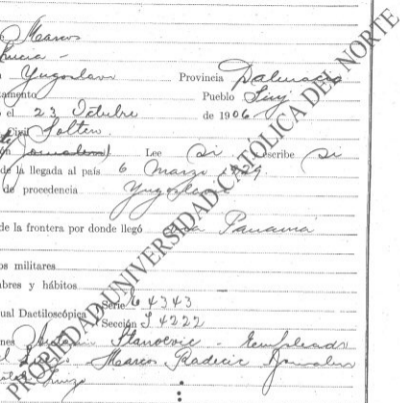 Marcos
Lucia -
Yugoslava Provincia Dalmacia
tamento Pueblo Sinj
el 23 Octubre de 1906
Civil Soltero
Jornalero Lee Si Escribe Si
de la llegada al país 6 Marzo 1929
de procedencia Yugoslavia
de la frontera por donde llegó Panamá
os militares
mbres y hábitos
ual Dactiloscópica Serie 4343
Sección I 4222
nes Antonio Stanovic - Empleado
Marcos Radecic Jornalero
PROPIEDAD UNIVERSIDAD CATÓLICA DEL NORTE